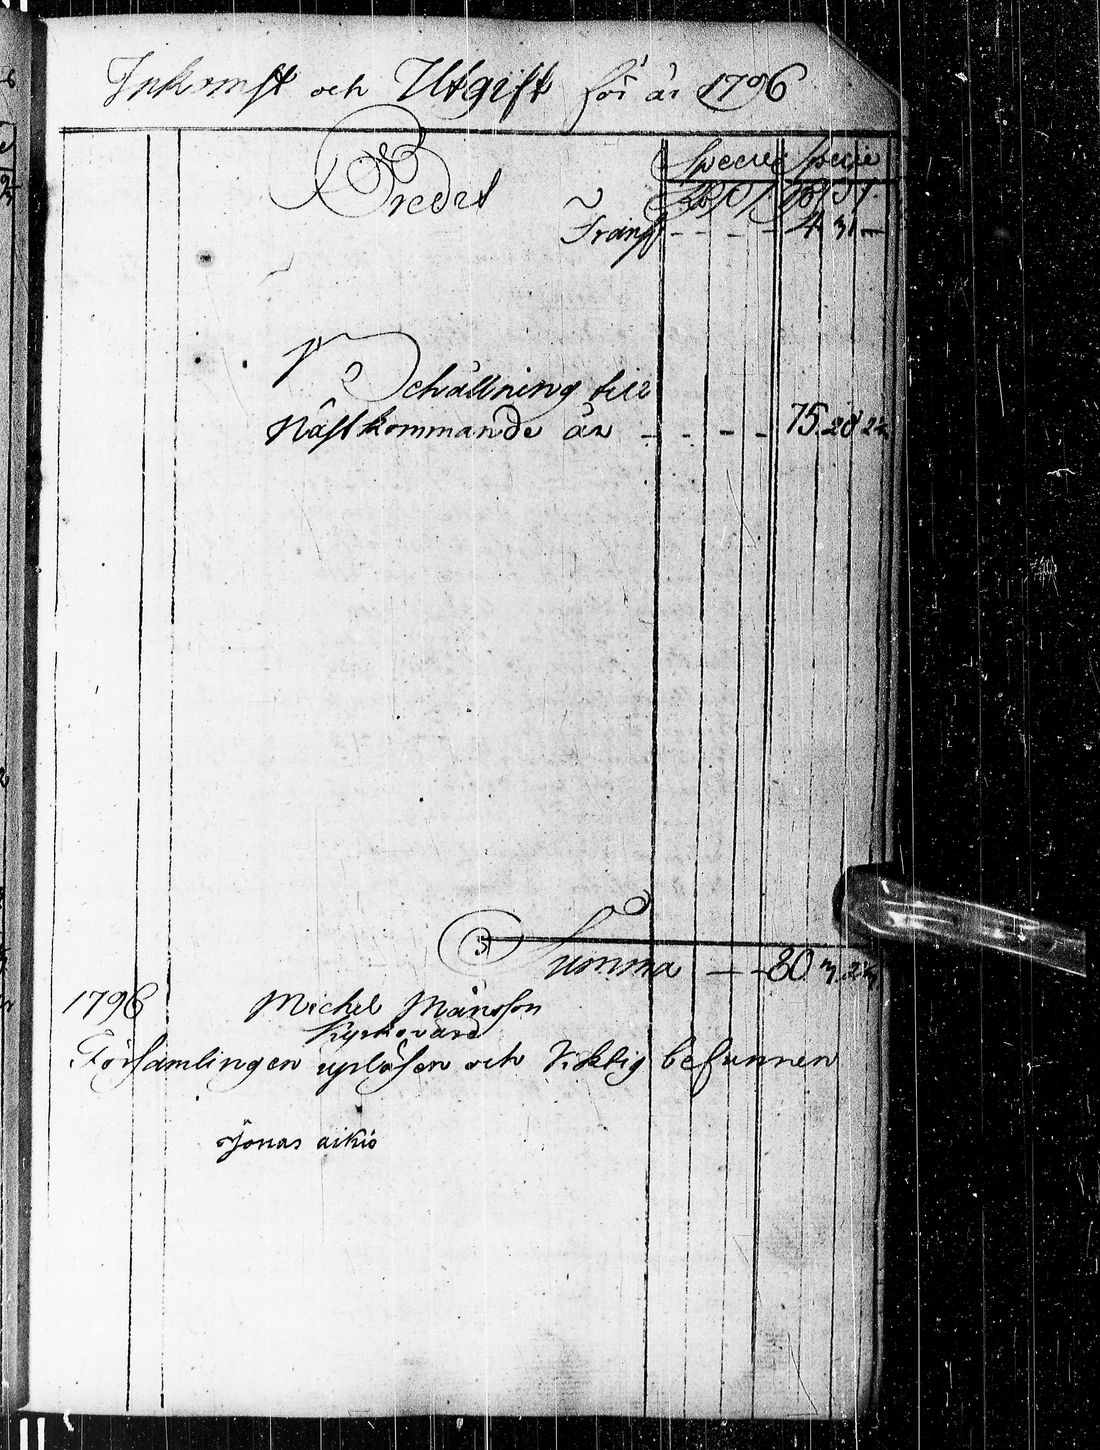 Inkomst och Utgift för år 1796
Specie Specie
Credet
Transp - - - - 4 31 -
Behållning till
Nästkommande år - - - - 75. 28 2
Summa - - 80
1796 Michel Månsson
Kyrkovärd
Församlingen upläsen och Vicktig befunnen
Jonas aikio